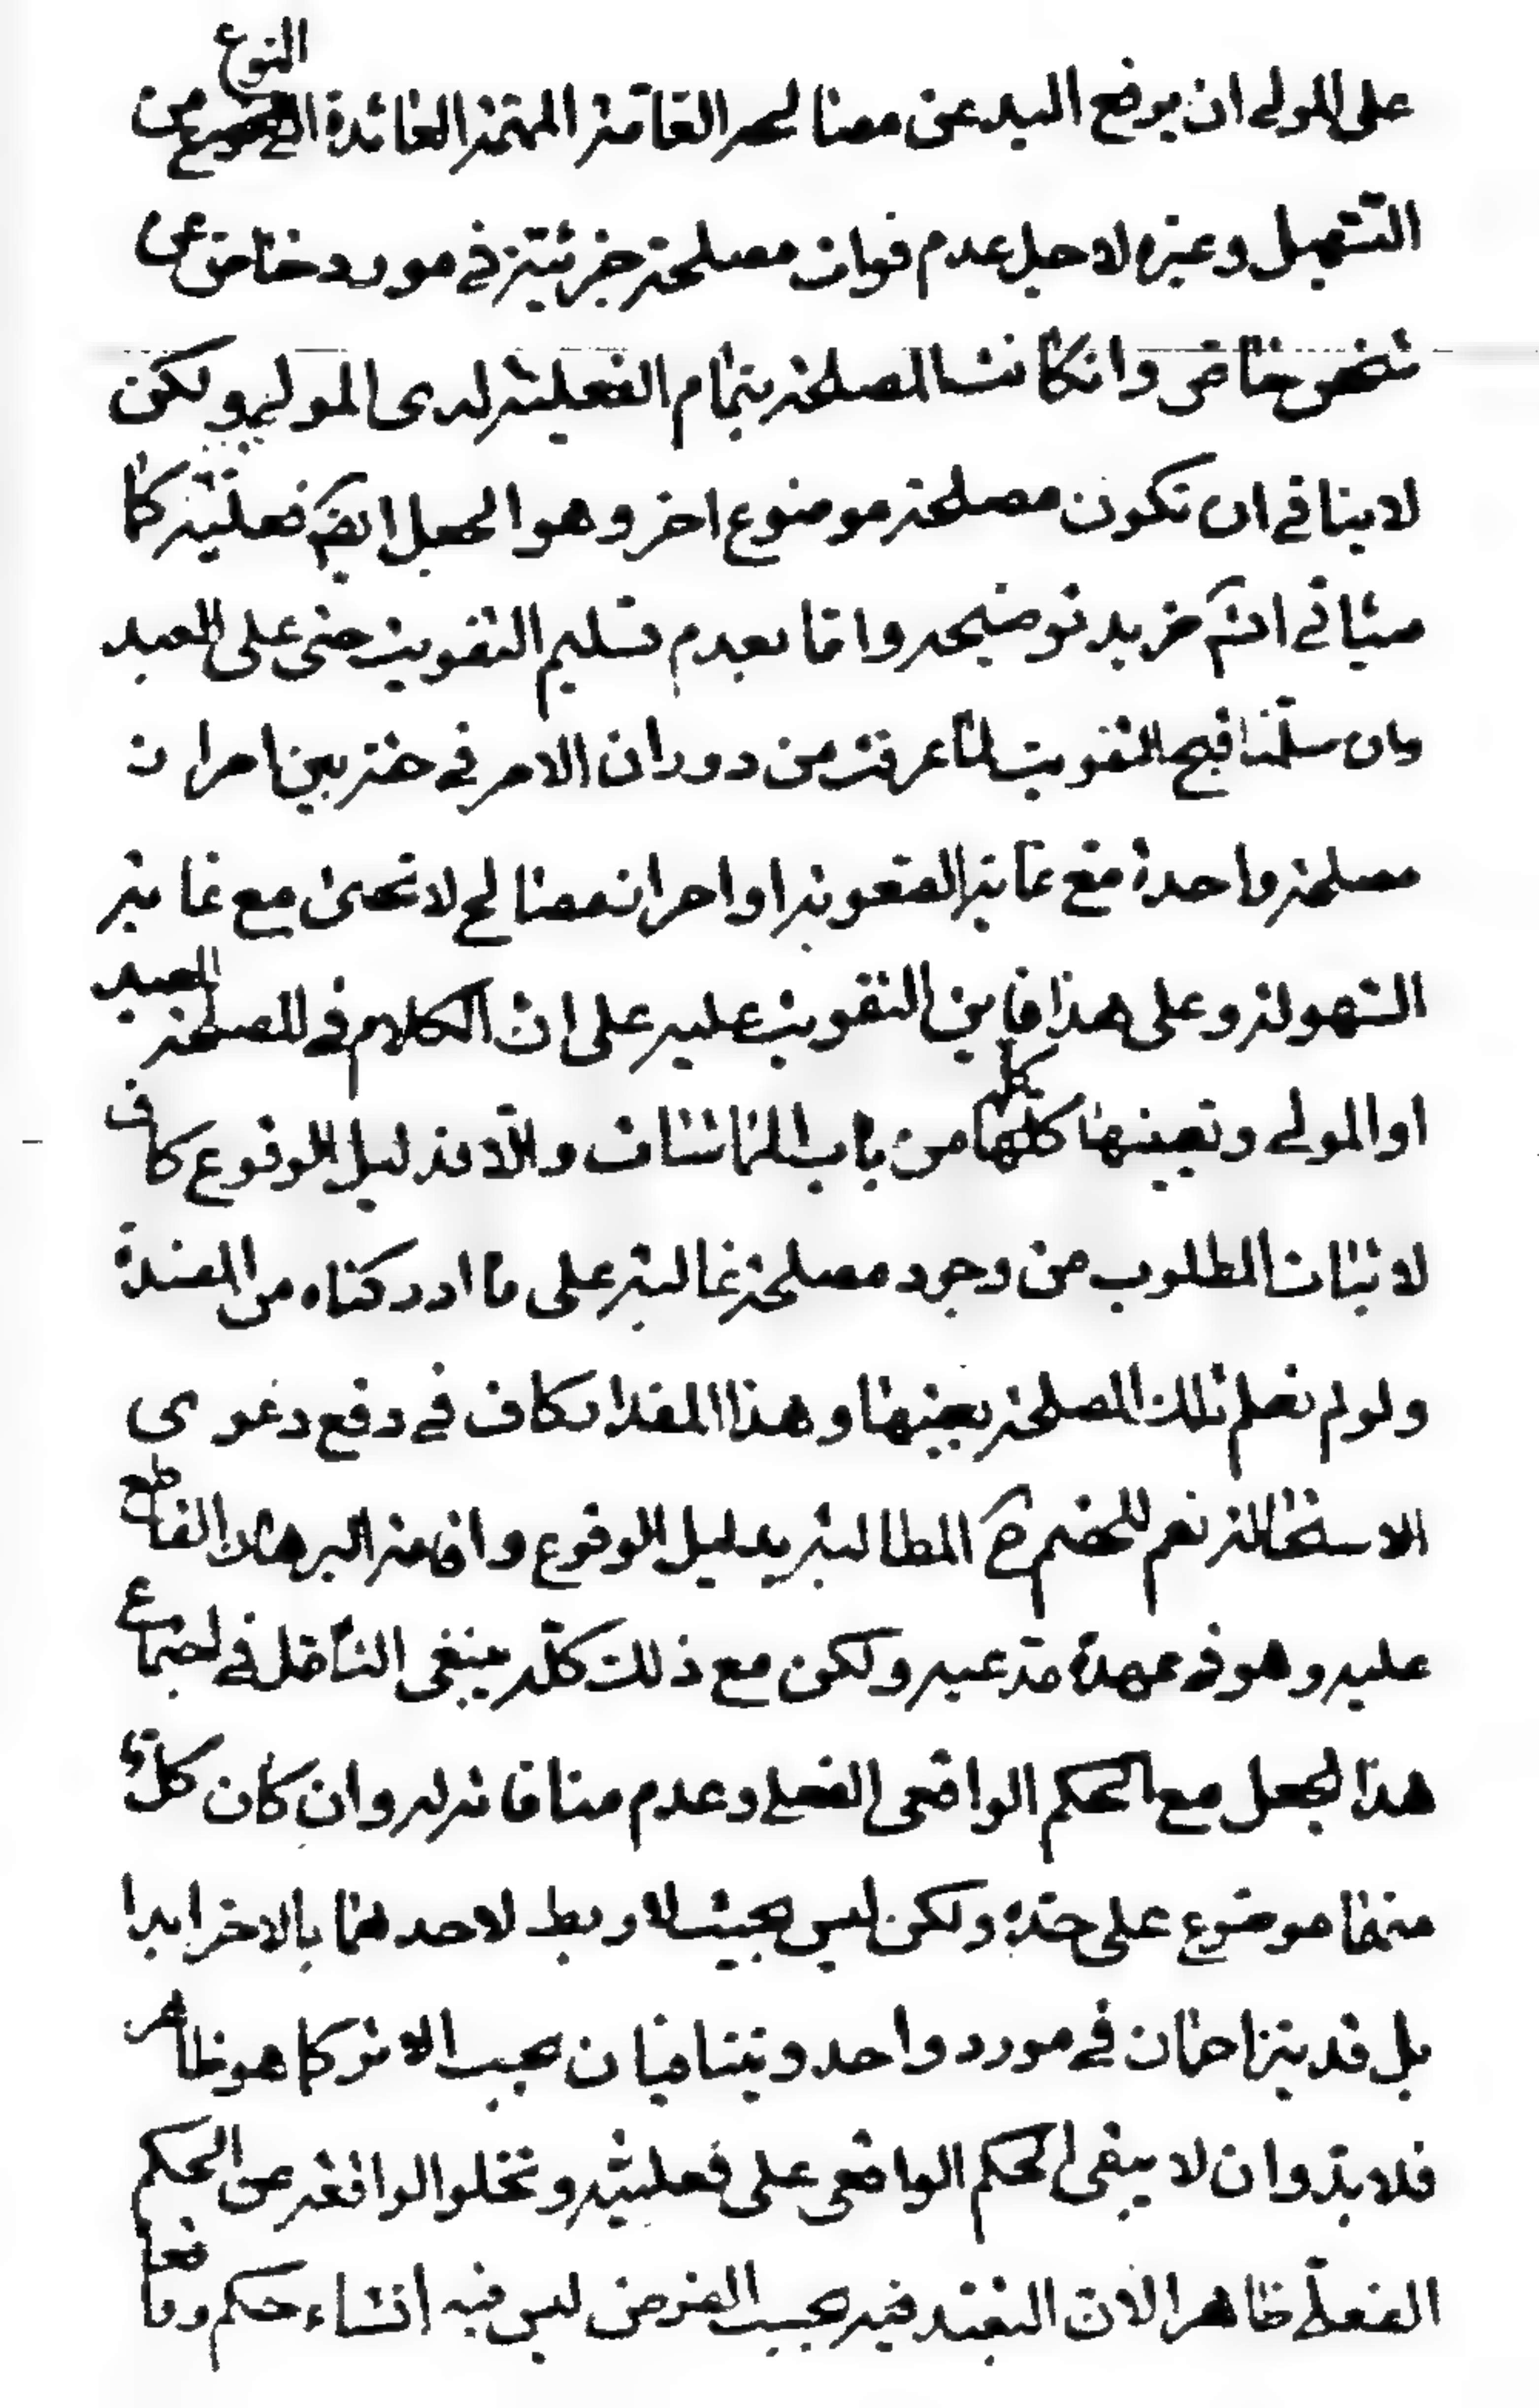 على المولى ان يرفع اليد عن مصالحه العامّة المهمّة العائدة الى النوع من
التسهيل وغيره لاجل عدم فوات مصلحة جزئيّة في مورد خاصّ عن
شخص خاصّ وان كانت المصلحة بتمام الفعليّة لدى المولى ولكن
لا ينافي ان تكون مصلحة موضوع اخر وهو الجعل ايضا فعليّة كما
سيأتي انشاء مزيد توضيحه وامّا بعدم تسليم التفويت حتى على العبد
وان سلّمنا قبح التفويت لما عرفت من دوران الامر في حقّه بين احراز
مصلحة واحدة مع غاية الصعوبة او احراز مصالح لا تحصى مع غاية
السهولة وعلى هذا فاين التفويت عليه على ان الكلام في المصلحة للعبد
او المولى وتعيينها كلها كلّه من باب المماشات والّا فدليل الوقوع كاف
لاثبات المطلوب من وجود مصلحة غالبة على ما ادركناه من المفسدة
ولو لم نعلم تلك المصلحة بعينها وهذا المقدار كاف في دفع دعوى
الاستحالة نعم للخصم ح المطالبة بدليل الوقوع واقامة البرهان القاطع
عليه وهو في عهدة مدّعيه ولكن مع ذلك كلّه ينبغي التأمّل في اجتماع
هذا الجعل مع الحكم الواقعي الفعلي وعدم منافاته له وان كان كلّ
منهما موضوع على حدة ولكن ليس بحيث لا ربط لاحدهما بالاخر ابدا
بل قد يتزاحمان في مورد واحد ويتنافيان بحسب الاثر كما هو ظاهر
فلا بدّ وان لا يبقى الحكم الواقعي على فعليّته وتخلوا الواقعة عن الحكم
الفعليّ ظاهرا لان التعبّد فيه بحسب الفرض ليس فيه انشاء حكم وما فعلا